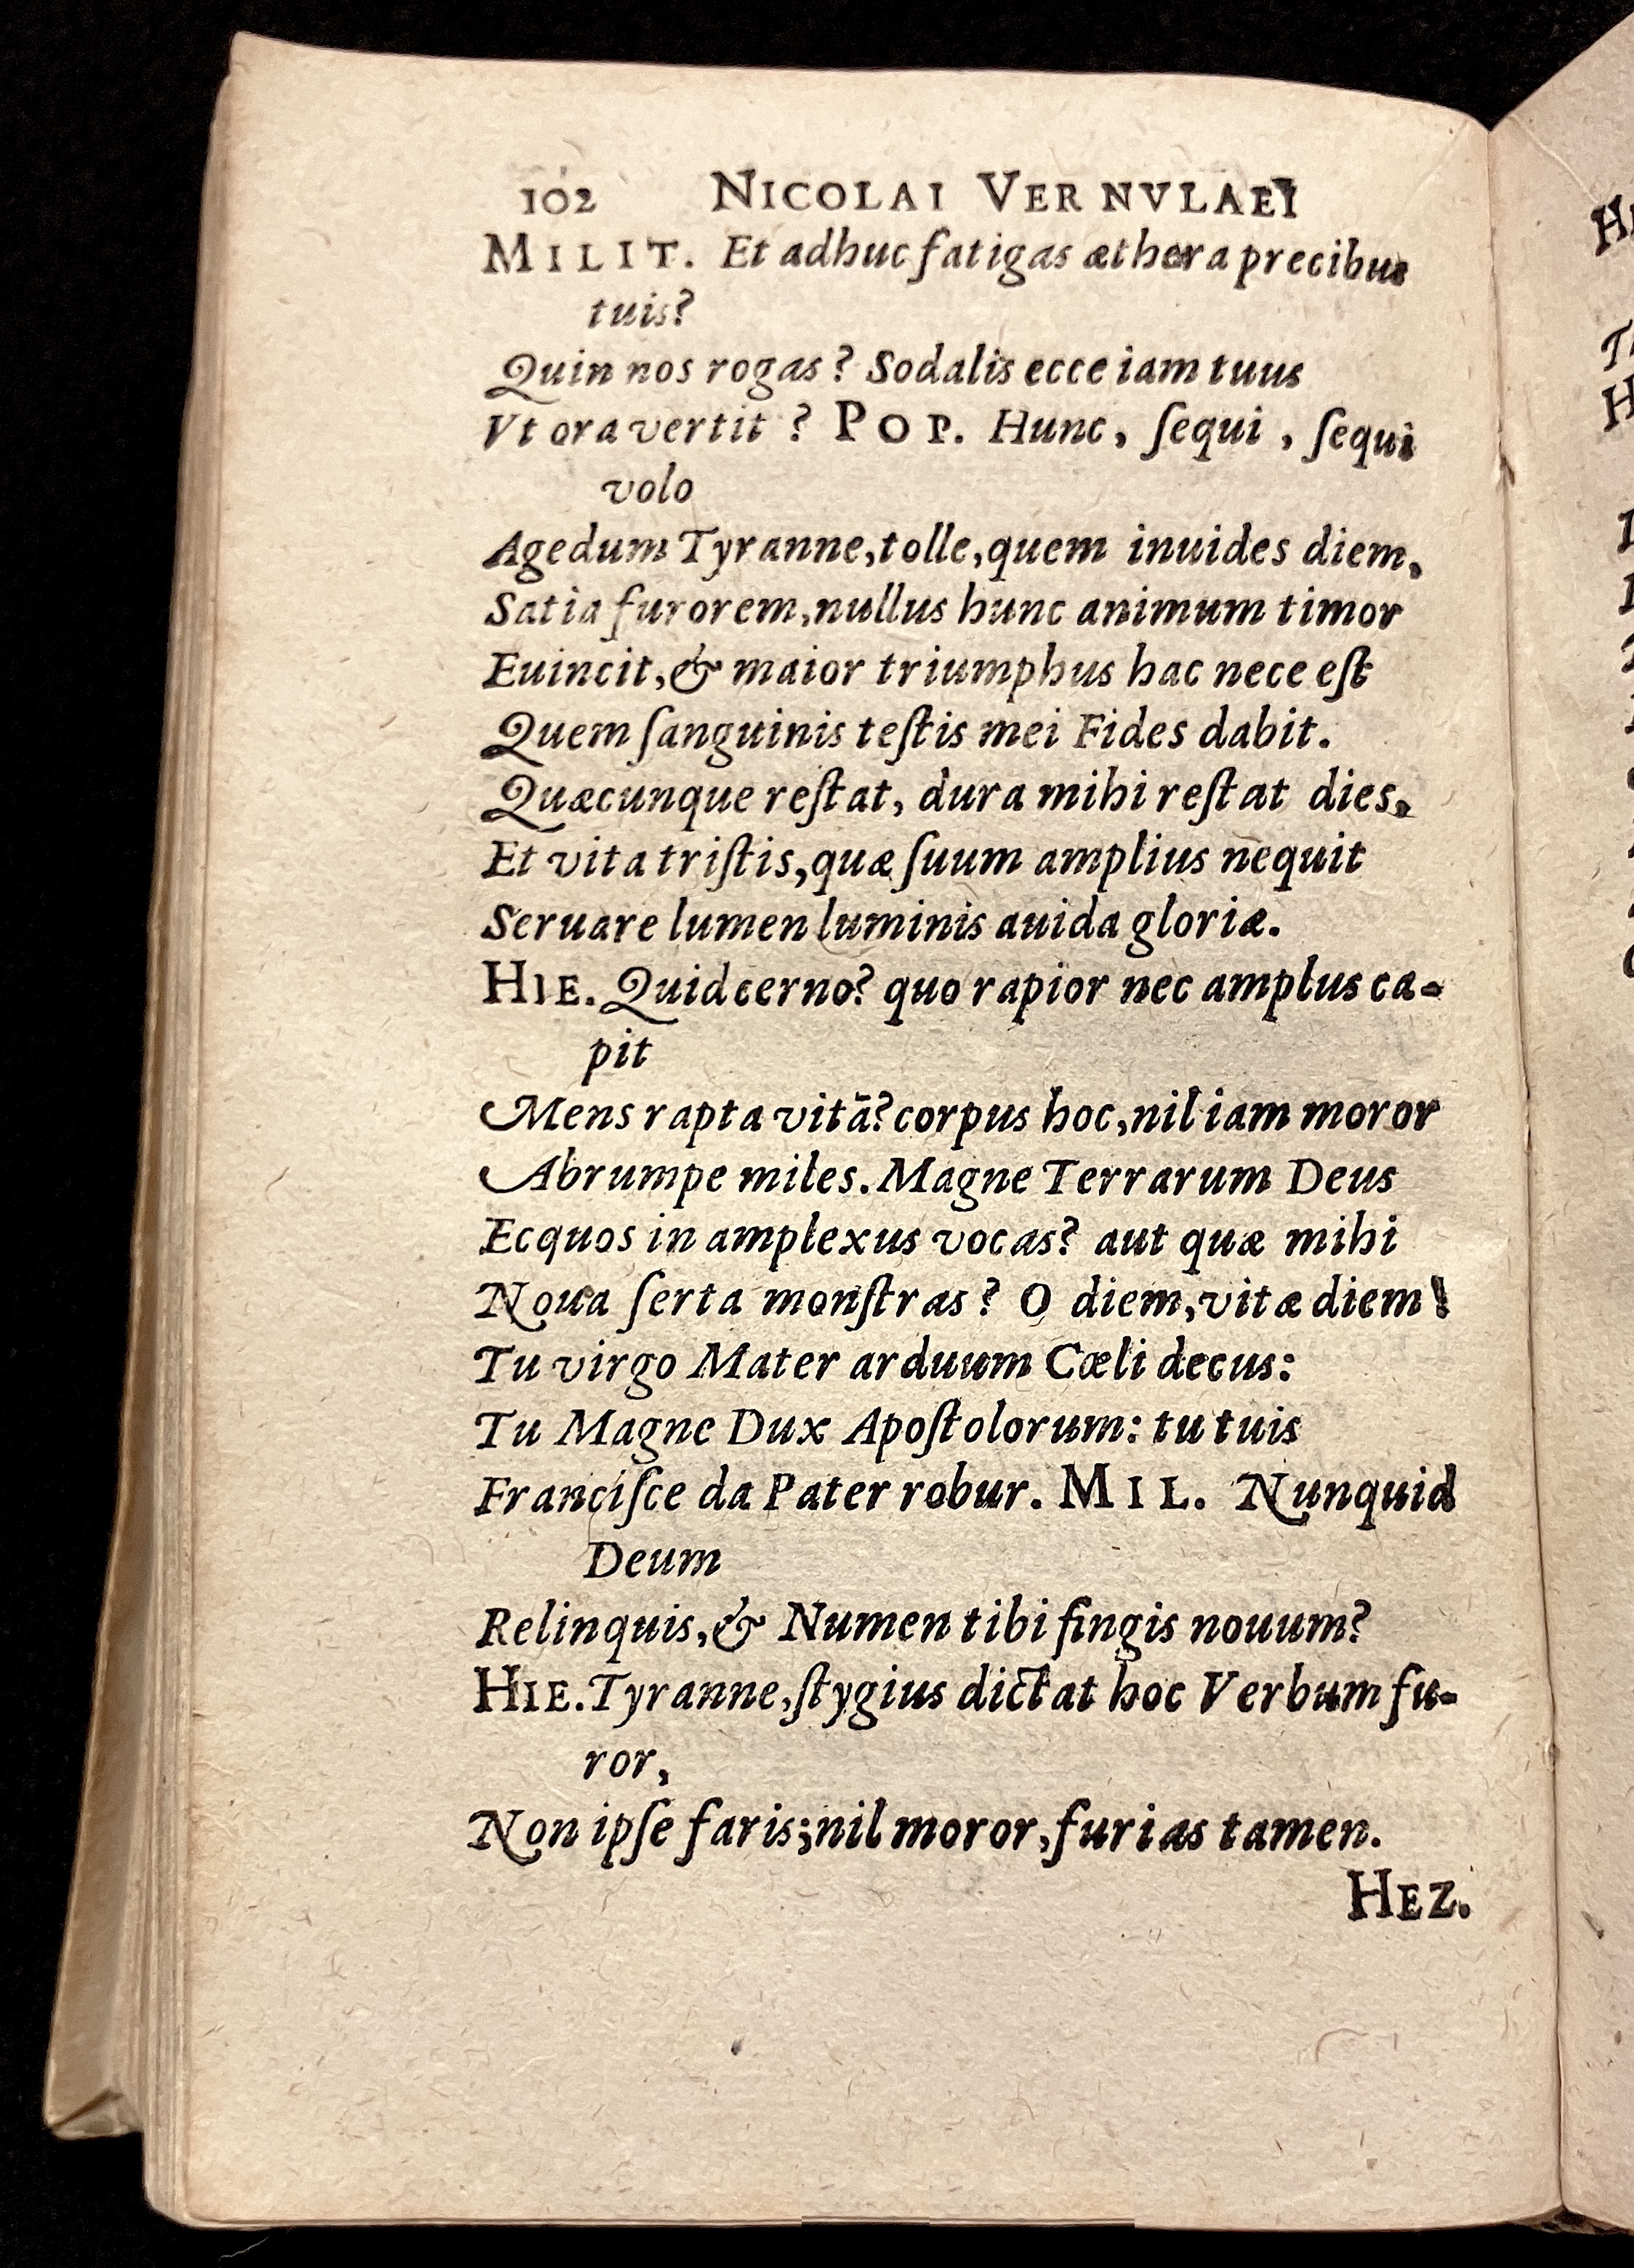 102 NICOLAI VERNVLAEI
MILIT. Et adhuc fatigas æthera precibus
tuis?
Quin nos rogas? Sodalis ecce iam tuus
Vt ora vertit? POP. Hunc, ſequi, ſequi
volo
Agedum Tyranne, tolle, quem inuides diem,
Satia furorem, nullus hunc animum timor
Euincit, & maior triumphus hac nece eſt
Quem ſanguinis teſtis mei Fides dabit.
Quæcunque reſtat, dura mihi reſtat dies,
Et vita triſtis, quæ ſuum amplius nequit
Seruare lumen luminis auida gloriæ.
HIE. Quid cerno? quo rapior nec amplus ca-
pit
Mens rapta vitā? corpus hoc, nil iam moror
Abrumpe miles. Magne Terrarum Deus
Ecquos in amplexus vocas? aut quæ mihi
Noua ſerta monſtras? O diem, vitæ diem!
Tu virgo Mater arduum Cœli decus:
Tu Magne Dux Apoſtolorum: tu tuis
Franciſce da Pater robur. MIL. Nunquid
Deum
Relinquis, & Numen tibi fingis nouum?
HIE. Tyranne, ſtygius dictat hoc Verbum fu-
ror,
Non ipſe faris; nil moror, furias tamen.
HEZ.